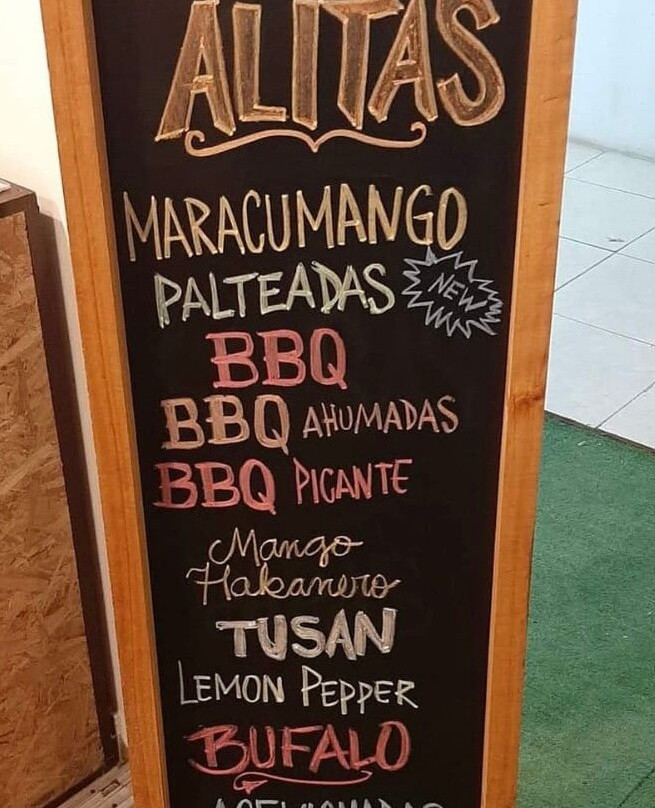 ALITAS
MARACUMANGO
PALTEADAS NEW
BBQ
BBQ AHUMADAS
BBQ PICANTE
Mango
Hakanero
TUSAN
LEMON PEPPER
BUFALO